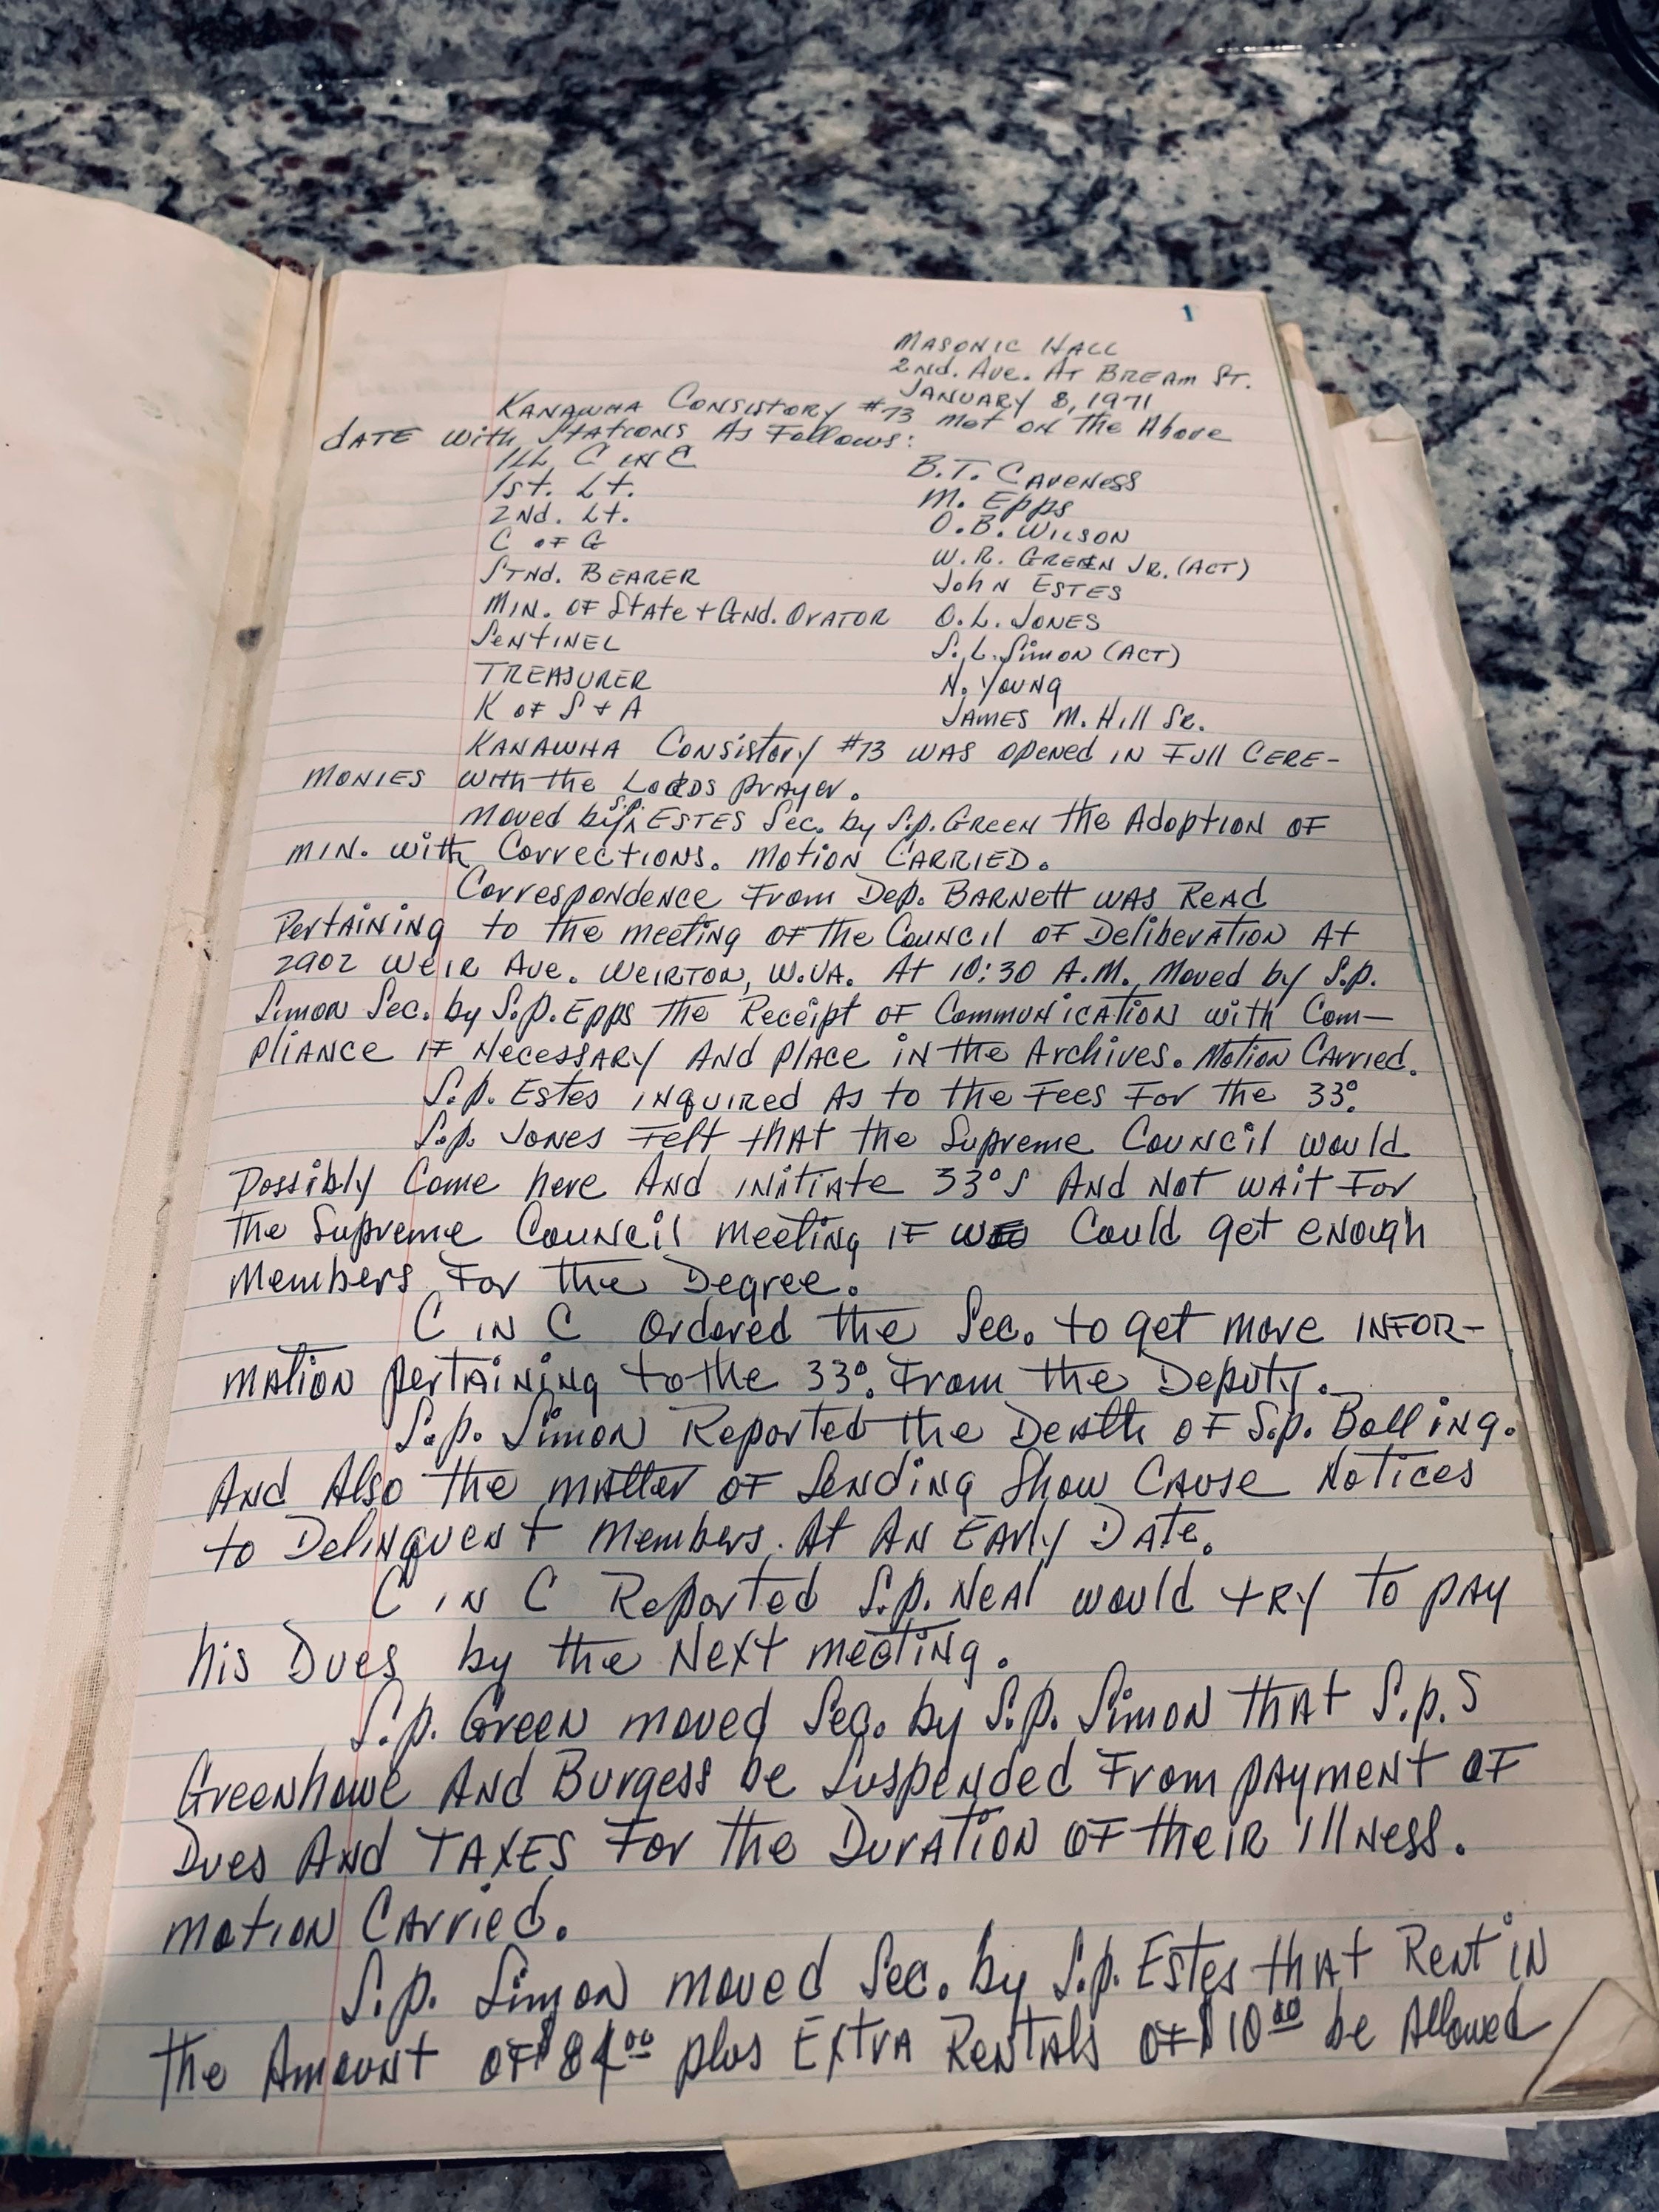 1
MASONIC HALL
2nd. Ave. At BREAM St.
JANUARY 8, 1971
KANAWHA CONSISTORY #73 met on the Above
dATE with STATIONS As Follows:
ILL C IN C B.T. CAVENESS
1st. Lt. M. Epps
2Nd. Lt. O.B. WILSON
C OF G W.R. GREEN JR. (ACT)
STNd. BEARER JohN ESTES
MIN. OF State + GNd. OrATOR O.L. JONES
SeNtINEL S.L. Simon (ACT)
TREASURER N. YOUNg
K OF S + A JAMES M. Hill SR.
KANAWHA CONSistory #73 was opened IN Full CERE-
MONIES with the LORDS prayer.
Moved by S.p. ESTES Sec. by S.p. GREEN the AdoptION OF
MIN. with CorrectIONS. MOtiON CARRIED.
CorrespONdENCE From Dep. BARNEtt was REAd
PertAINING to the meeting OF the COUNCIl OF DeliberATION At
2902 WEIR AVE. WEIRTON, W.VA. At 10:30 A.M. Moved by S.p.
Simon Sec. by S.p. Epps the Receipt OF CommuNicATION with Com-
pliANCE IF NECESSARY ANd plACE iN the Archives. MotiON CArried.
S.p. Estes INquired As to the FEES For the 33°.
S.p. JONES FElt thAt the Supreme COUNCIl would
possibly Come here ANd INitiAte 33°s ANd Not wAit For
the Supreme COUNCil meeting IF WE Could get eNough
members For the Degree.
C IN C Ordered the Sec. to get more INFOR-
mAtion pertAINING to the 33°. From the Deputy.
S.p. Simon Reported the DeAth OF S.p. BolliNg.
ANd Also the mAtter OF SendiNg Show CAUSE NotiCES
to DeliNqueNt members. At AN EArly DAte.
C IN C Reported S.p. NeAl would tRY to pAY
his Dues by the Next meetiNg.
S.p. GreeN moved Sec. by S.p. Simon thAt S.p.S
GreeNhowe ANd Burgess be SuspeNded From pAymeNt OF
Dues ANd TAXES For the DurATION OF theIR IllNess.
motION CArried.
S.p. SimoN moved Sec. by S.p. Estes thAt ReNt iN
the AmouNt OF $84.00 plus ExtrA ReNtAls OF $10.00 be Allowed